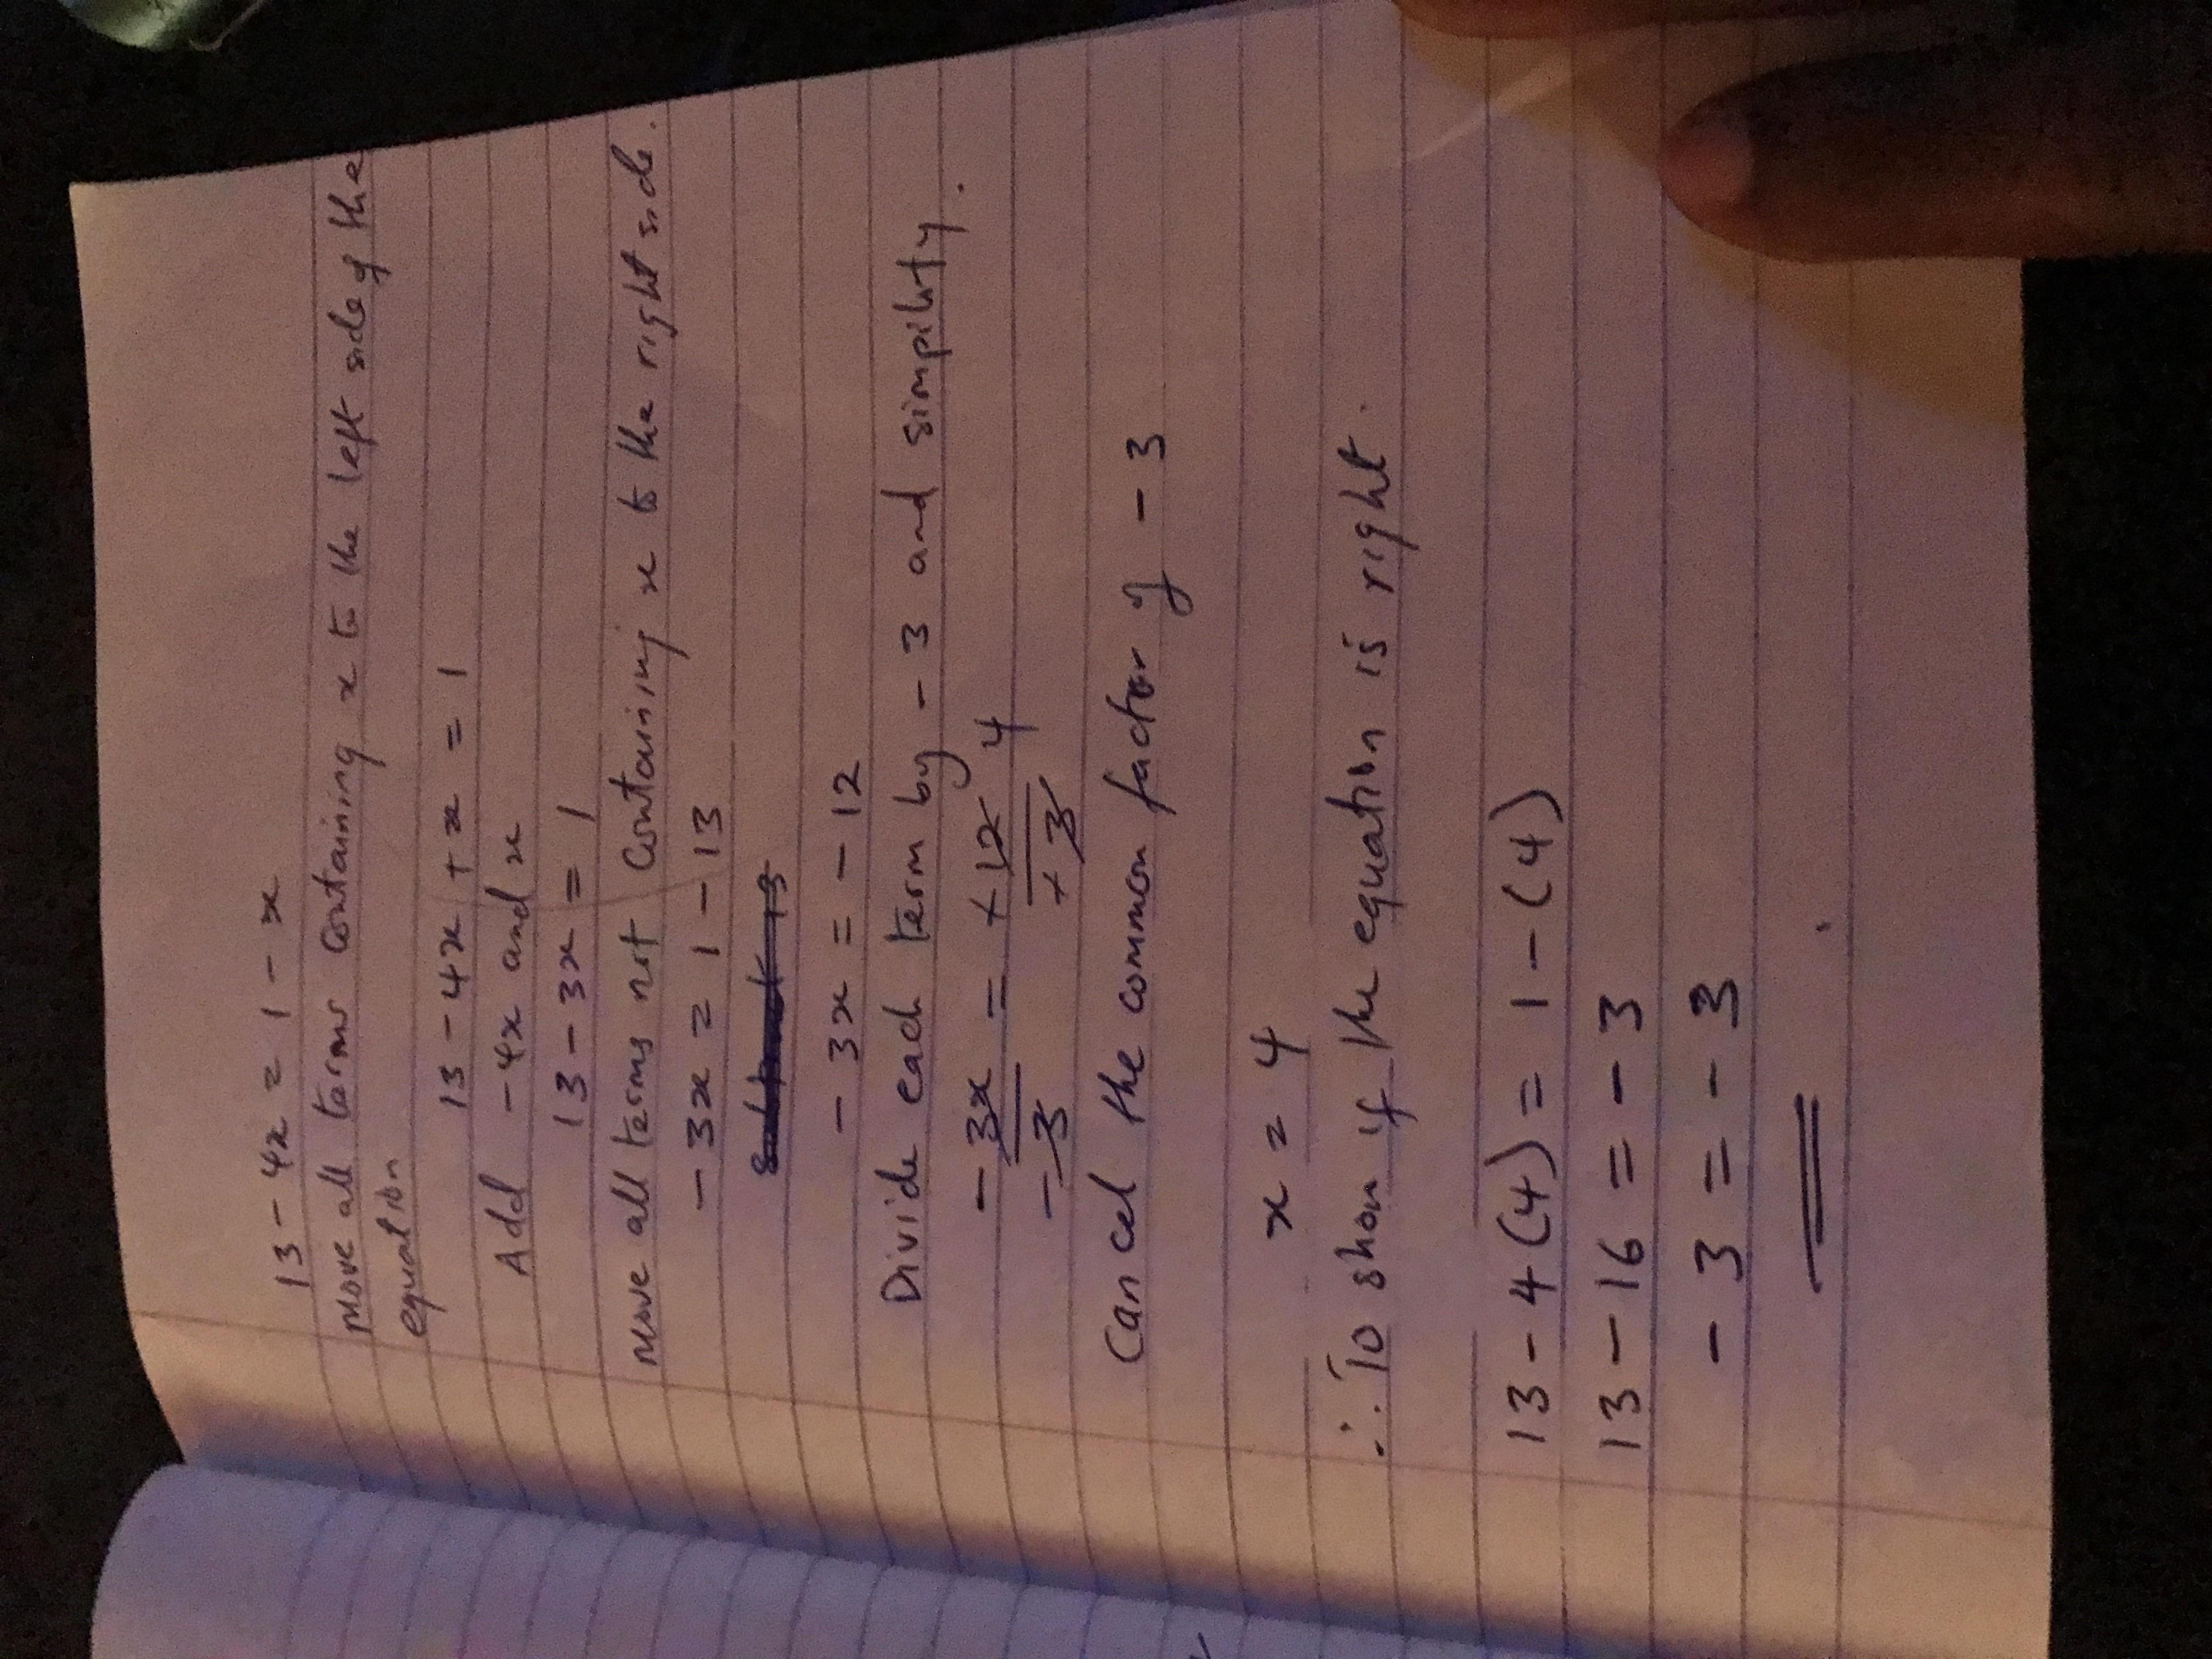 13 - 4x = 1 - x
move all terms containing x to the left side of the
equation
13 - 4x + x = 1
Add - 4x and x
13 - 3x = 1
move all terms not containing x to the right side.
- 3x = 1 - 13
- 3x = - 12
Divide each term by - 3 and simplify.
- 3x = + 12 4
- 3 + 3
Cancel the common factor of - 3
x = 4
∴ To show if the equation is right.
13 - 4(4) = 1 - (4)
13 - 16 = - 3
- 3 = - 3